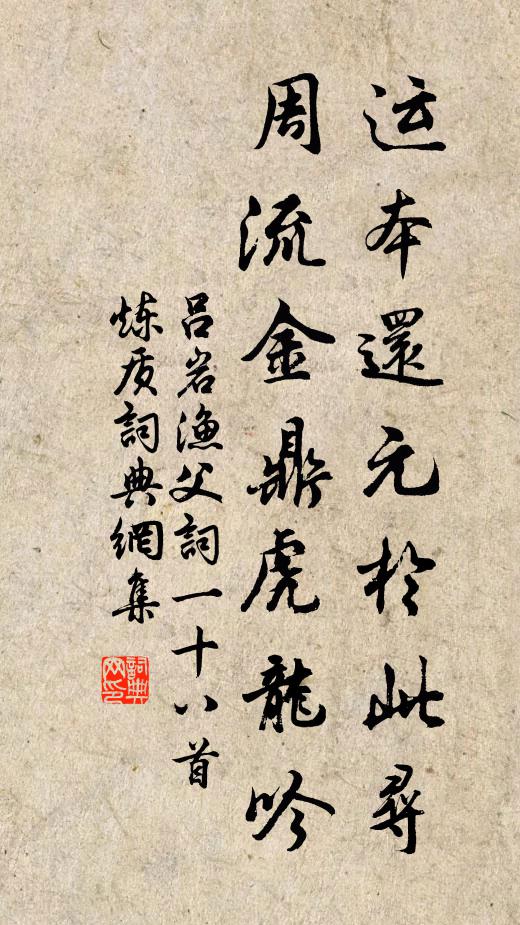 运本還元於此尋
周流金鼎虎龍吟
吕岩漁父詞一十八首
炼质詞典網集
詞典网印